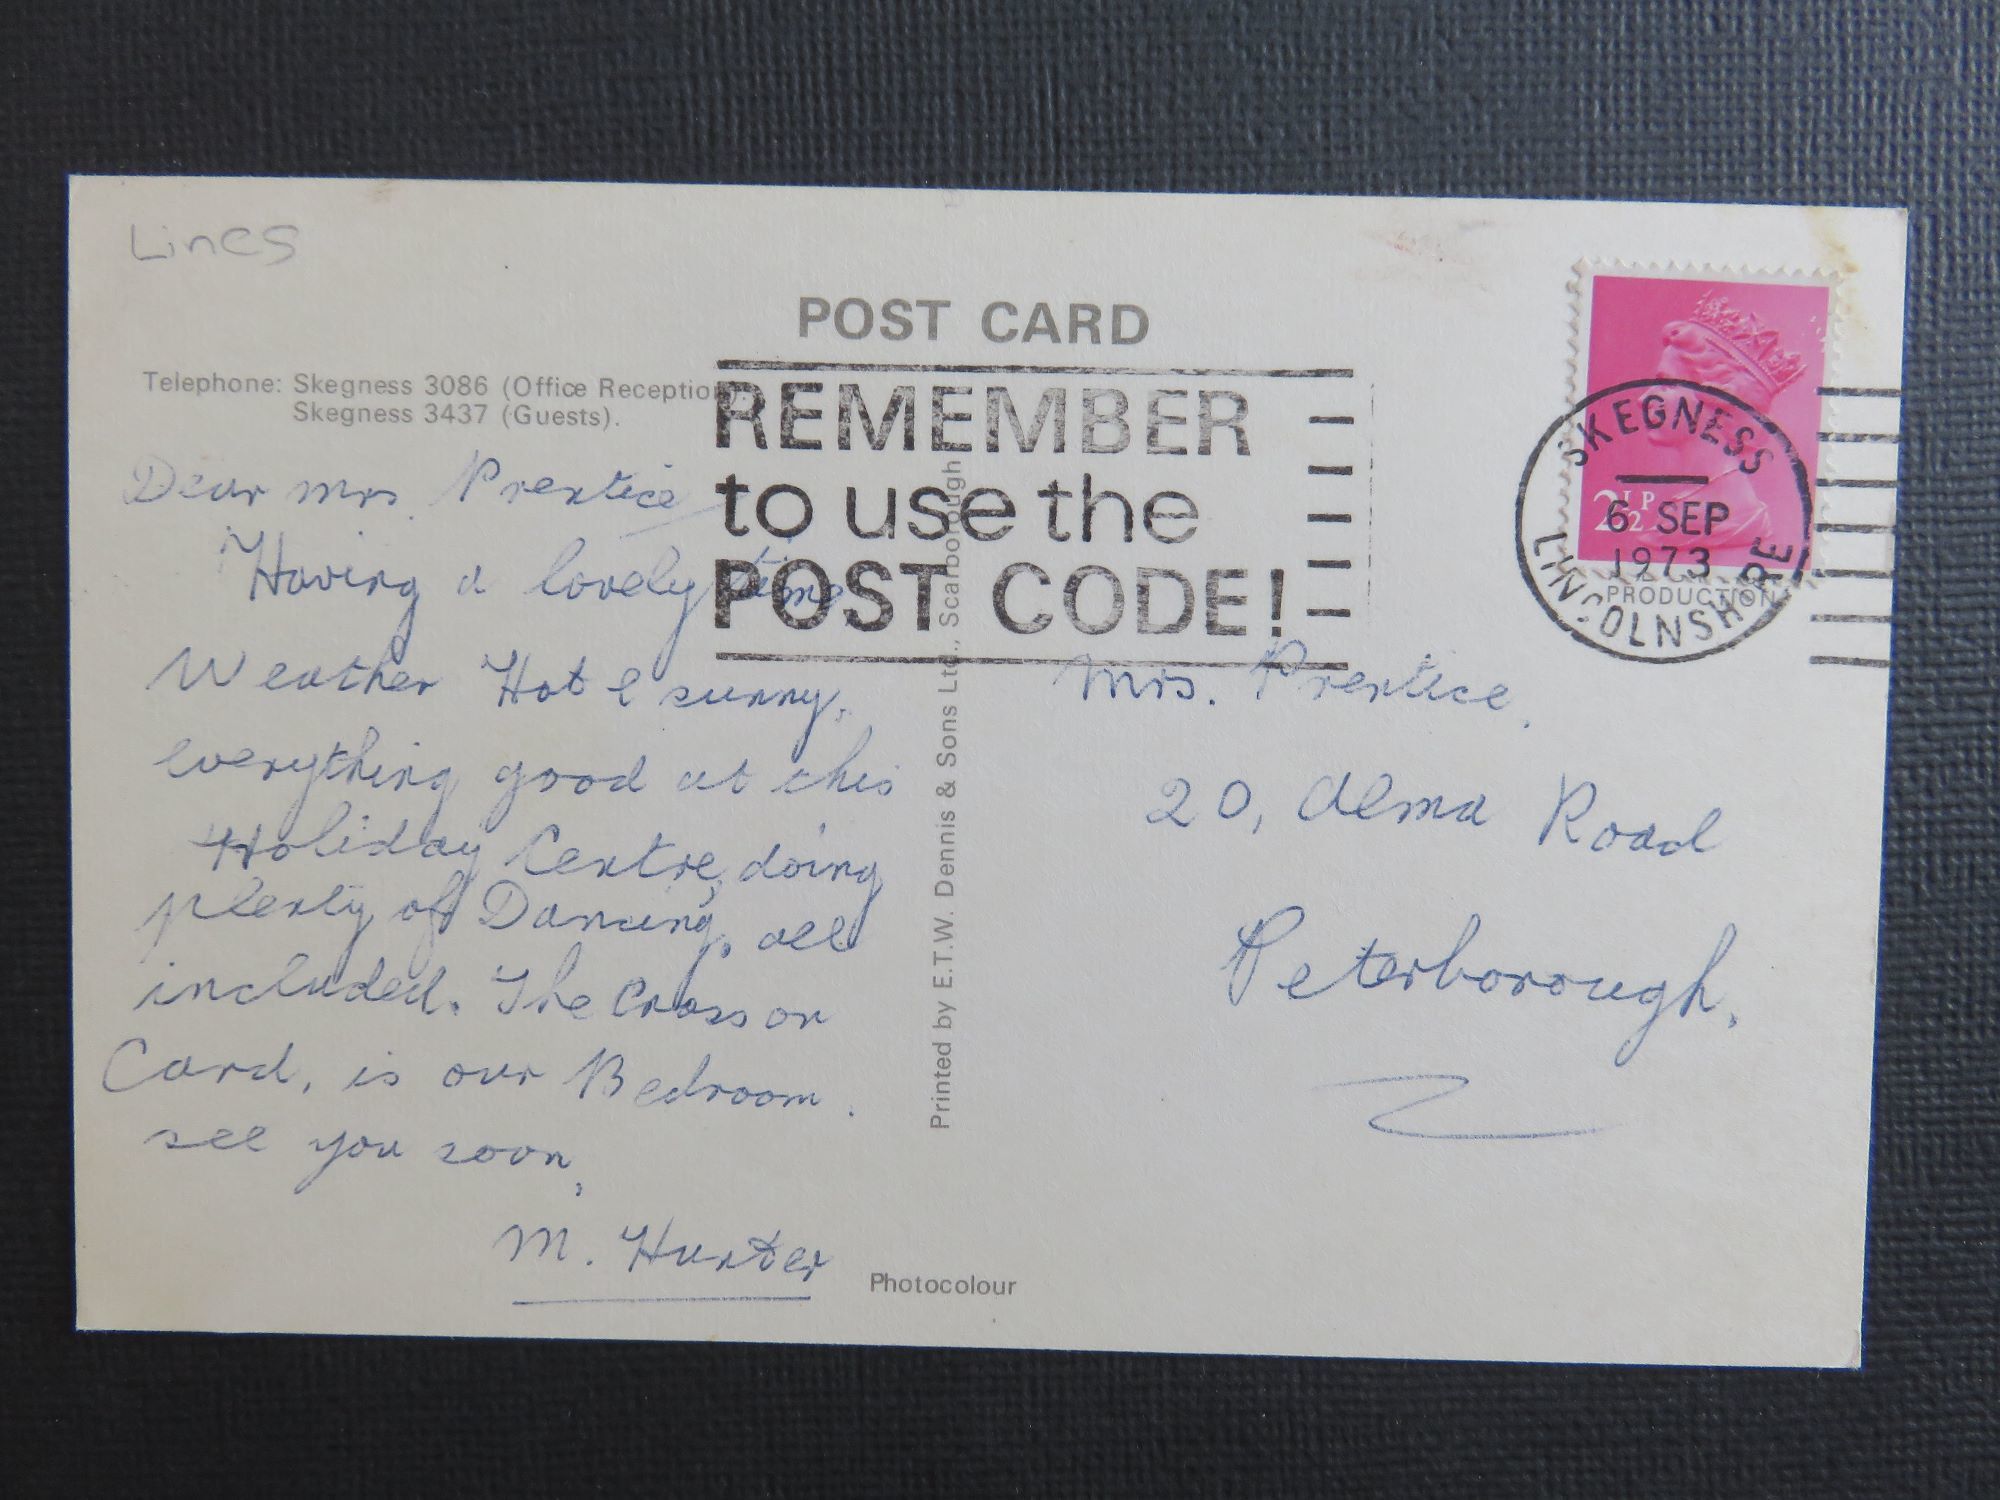 Lincs
POST CARD
Telephone: Skegness 3086 (Office Reception).
Skegness 3437 (Guests).
REMEMBER
to use the
POST CODE!
SKEGNESS
6 SEP
1973
LINCOLNSHIRE
2½P
PRODUCTION
Dear Mrs. Prentice
Having a lovely time
Weather Hot & sunny,
everything good at this
Holiday Centre, doing
plenty of Dancing, all
included. The Cross on
Card, is our Bedroom.
see you soon,
M. Hunter
Printed by E.T.W. Dennis & Sons Ltd., Scarborough
Photocolour
Mrs. Prentice,
20, Alma Road
Peterborough.